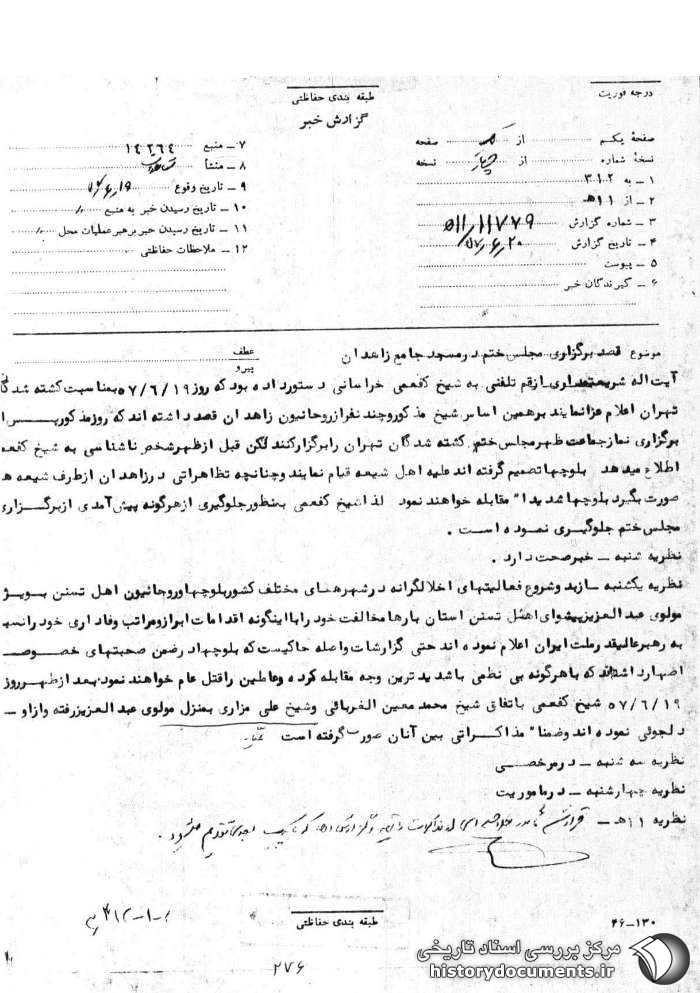 درجه فوریت
طبقه بندی حفاظتی
گزارش خبر
صفحهٔ یکم از صفحه
نسخهٔ شماره از نسخه
۱ – به ۳۱۲
۲ – از ۱۱هـ
۳ – شماره گزارش ۱۱۷۷۹/۵۱۱
۴ – تاریخ گزارش ۵۷/۶/۲۰
۵ – پیوست
۶ – گیرندگان خبر
۷ – منبع ۱۴۲۶۴
۸ – منشأ
۹ – تاریخ وقوع ۵۷/۶/۱۹
۱۰ – تاریخ رسیدن خبر به منبع
۱۱ – تاریخ رسیدن خبر برهبر عملیات محل
۱۲ – ملاحظات حفاظتی
موضوع قصد برگزاری مجلس ختم در مسجد جامع زاهدان
عطف
پیرو
آیت اله شریعتمداری از قم تلفنی به شیخ کفعمی خراسانی دستور داده بود که روز ۵۷/۶/۱۹ بمناسبت کشته شدگان
تهران اعلام عزا نمایند برهمین اساس شیخ مذکور و چند نفر از روحانیون زاهدان قصد داشته اند که روز مذکور پس از
برگزاری نماز جماعت ظهر مجلس ختم کشته شدگان تهران را برگزار کنند لکن قبل از ظهر شخص ناشناسی به شیخ کفعمی
اطلاع میدهد بلوچها تصمیم گرفته اند علیه اهل شیعه قیام نمایند و چنانچه تظاهراتی در زاهدان از طرف شیعه ها
صورت بگیرد بلوچها شدیدا" مقابله خواهند نمود لذا شیخ کفعمی بمنظور جلوگیری از هرگونه پیش آمدی از برگزاری
مجلس ختم جلوگیری نموده است .
نظریه شنبه – خبر صحت دارد .
نظریه یکشنبه – از بدو شروع فعالیتهای اخلالگرانه در شهرهای مختلف کشور بلوچها و روحانیون اهل تسنن بویژ
مولوی عبدالعزیز پیشوای اهل تسنن استان بارها مخالفت خود را با اینگونه اقدامات ابراز و مراتب وفاداری خود را نسب
به رهبر عالیقدر ملت ایران اعلام نموده اند حتی گزارشات واصله حاکیست که بلوچها در ضمن صحبتهای خصوص
اظهار داشته اند که با هرگونه بی نظمی با شدید ترین وجه مقابله کرده و عاملین را قتل عام خواهند نمود بعد از ظهر روز
۵۷/۶/۱۹ شیخ کفعمی باتفاق شیخ محمد معین الغربائی و شیخ علی مزاری بمنزل مولوی عبدالعزیز رفته و از او –
دلجوئی نموده اند و ضمنا" مذاکراتی بین آنان صورت گرفته است
نظریه سه شنبه – در مرخصی
نظریه چهارشنبه – در ماموریت
نظریه ۱۱هـ –
طبقه بندی حفاظتی
۴۶-۱۳۰
۲۷۶
مرکز بررسی اسناد تاریخی
historydocuments.ir